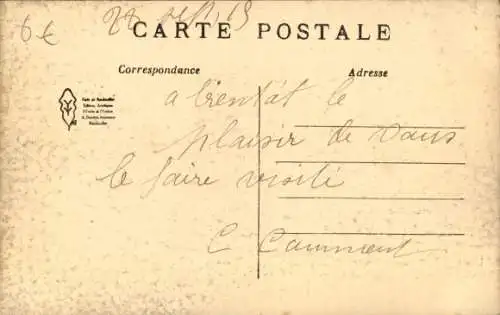 6€ 22 sept 19
CARTE POSTALE
Correspondance
Adresse
a bientat le
plaisir de vous
le faire visité
C